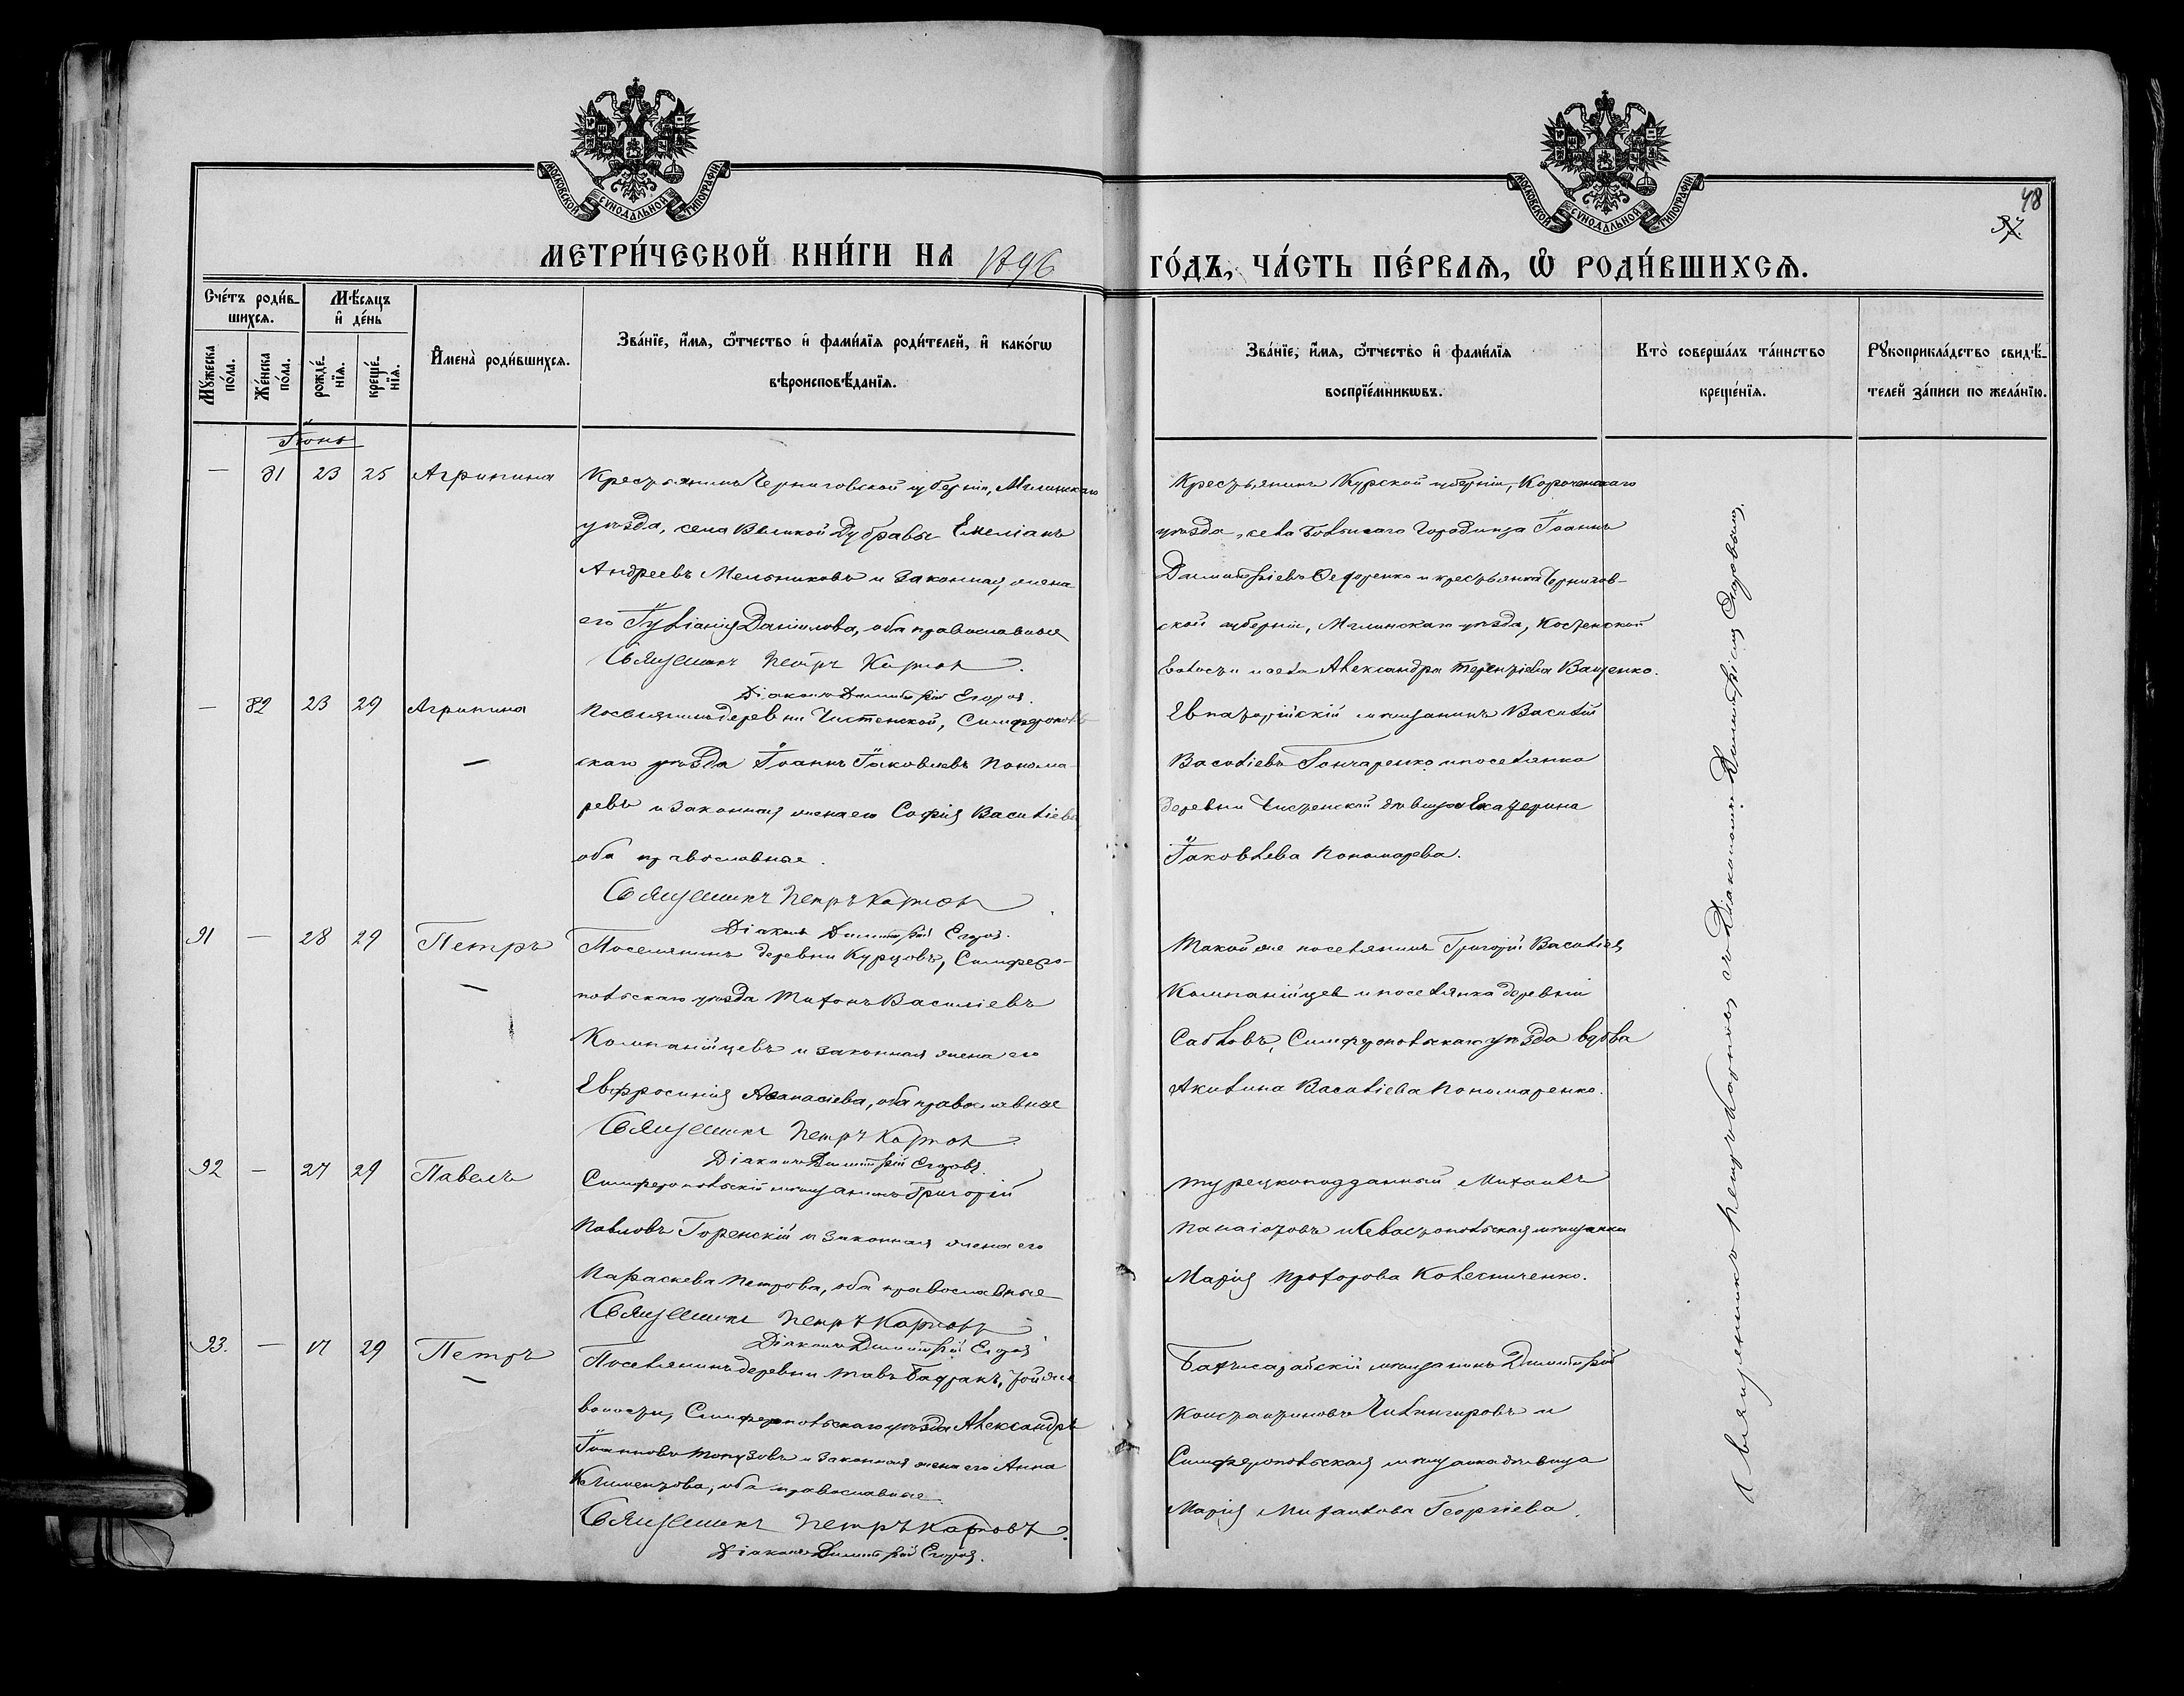 МОСКОВСКОЙ СѴНОДАЛЬНОЙ ТИПОГРАФІИ
МОСКОВСКОЙ СѴНОДАЛЬНОЙ ТИПОГРАФІИ
48
37.
МЕТРИ́ЧЕСКОЙ КНИ́ГИ НА 1896
ГО́ДЪ, ЧА́СТЬ ПЕ́РВАЯ, Ѡ҆ РОДИ́ВШИХСЯ.
Сче́тъ роди́в-
шихся.
Мѣ́сяцъ
и҆ де́нь
Мꙋ́жеска
по́ла.
Же́нска
по́ла.
рожде́-
нїѧ.
креще́-
нїѧ.
И҆мена̀ роди́вшихся.
Зва́нїе, и҆́мѧ, ѻ҆́тчество и҆ фами́лїѧ роди́телей, и҆ како́гѡ
вѣроисповѣ́данїѧ.
Зва́нїе, и҆́мѧ, ѻ҆́тчество и҆ фами́лїѧ
воспрїе́мникѡвъ.
Кто̀ соверша́лъ та́инство
креще́нїѧ.
Рꙋкоприкла́дство свидѣ́-
телей за́писи по жела́нїю.
Іюнь
— 81 23 25 Агрипина
Крестьянинъ Черниговской губерніи, Мглинскаго
уѣзда, села Великой Дубравы Емеліанъ
Андреевъ Мельниковъ и законная жена
его Іуліанія Даніилова, оба православные
Священникъ Петръ Карпов
Діаконъ Димитрій Егоров.
Крестьянинъ Курской губерніи, Корочанскаго
уѣзда, села Большаго Городища Іоаннъ
Димитріевъ Федоренко и крестьянка Чернигов-
ской губерніи, Мглинскаго уѣзда, Костенской
волости и села Александра Терентіева Ващенко.
— 82 23 29 Агрипина
—
Поселянинъ деревни Чистенской, Симферополь-
скаго уѣзда Іоаннъ Іаковлевъ Понома-
ревъ и законная жена его Софія Василіева
оба православные.
Священникъ Петръ Карпов
Діаконъ Димитрій Егоров.
Евпаторійскій мѣщанинъ Василій
Василіевъ Гончаренко и поселянка
деревни Чистенской дѣвица Екатерина
Іаковлева Пономарева.
91 — 28 29 Петръ
—
Поселянинъ деревни Курцовъ, Симферо-
польскаго уѣзда Тихонъ Василіевъ
Компанійцевъ и законная жена его
Евфросинія Аѳанасіева, оба православные
Священникъ Петръ Карпов
Діаконъ Димитрій Егоровъ.
Такой же поселянинъ Григорій Василіев
Компанійцев и поселянка деревни
Сабловъ, Симферопольскаго уѣзда вдова
Акилина Василіева Пономаренко.
92 — 27 29 Павелъ
Симферопольскій мѣщанинъ Григорій
Павловъ Горенскій и законная жена его
Параскева Петрова, оба православные
Священникъ Петръ Карповъ
Діаконъ Димитрій Егоров
турецкоподданный Михаилъ
Панаіотовъ и Севастопольская мѣщанка
Марія Прохорова Колесниченко.
93. — 17 29 Петръ
—
Поселянинъ деревни Тавъ Бадракъ, той же
волости, Симферопольскаго уѣзда Александръ
Іоанновъ Топузовъ и законная жена его Анна
Климентова, оба православные
Священникъ Петръ Карповъ.
Діаконъ Димитрій Егоров.
Бахчисарайскій мѣщанинъ Димитрій
Константиновъ Чилингировъ и
Симферопольская мѣщанка дѣвица
Марія Михаилова Георгіева.
Священникъ Петръ Карповъ съ Діакономъ Димитріемъ Егоровымъ.